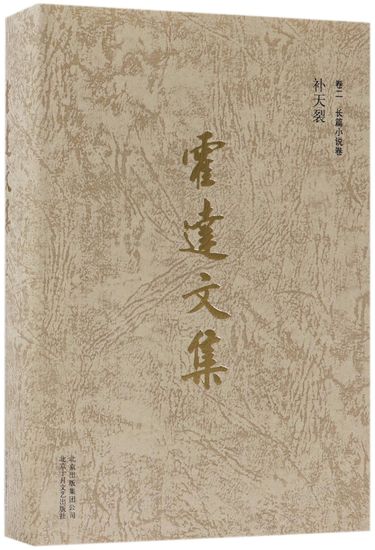 卷二 长篇小说卷
补天裂
霍达文集
北京出版集团公司
北京十月文艺出版社